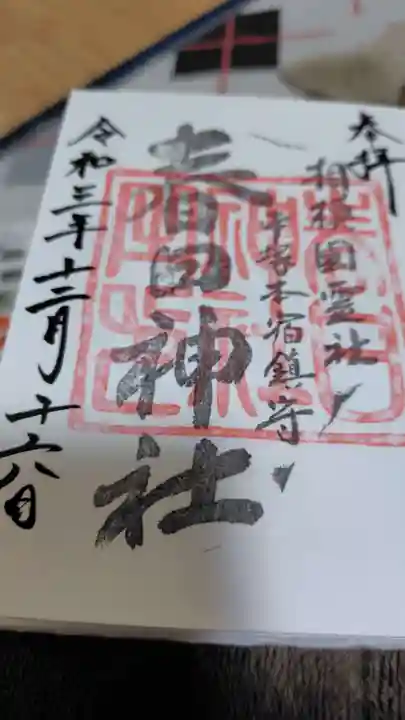 奉拝
相模国霊社
平塚本宿鎮守
春日神社
令和三年十二月十六日